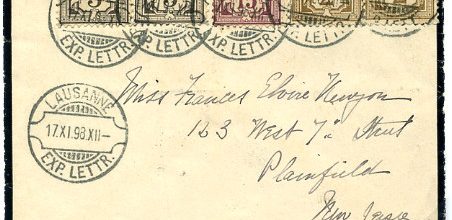 EXP. LETTR.
EXP. LETTR.
EXP. LETTR.
LAUSANNE
17.XI.98.XII-
EXP. LETTR.
Miss Frances Elvire
123 West 7th Street
Plainfield
New Jerse